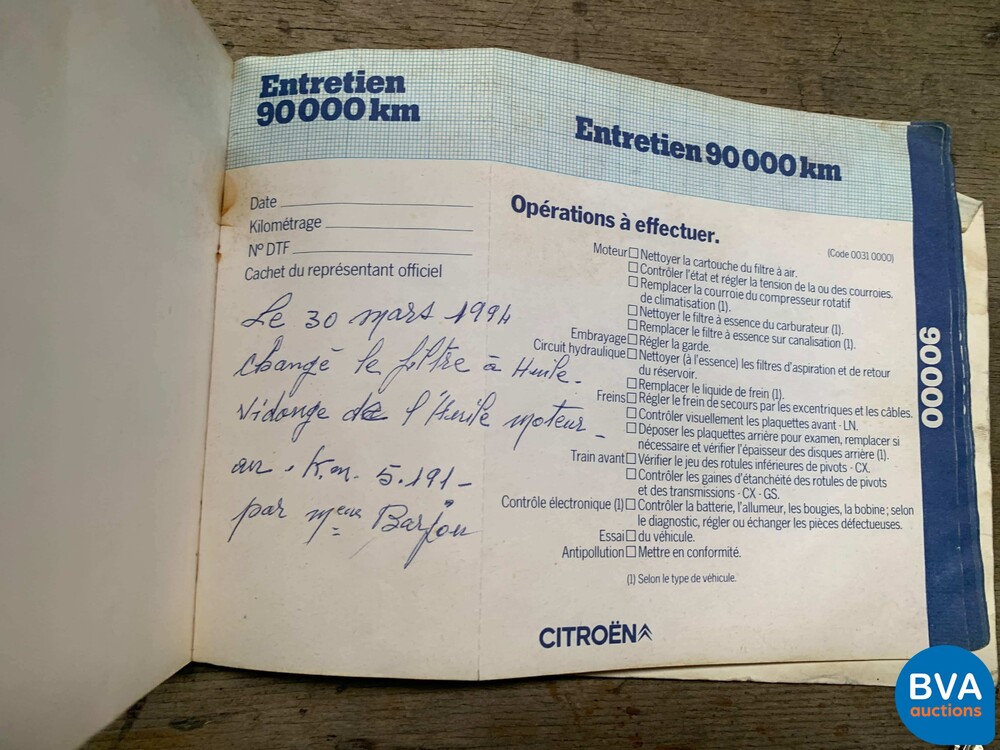 Entretien
90000 km
Date
Kilométrage
N° DTF
Cachet du représentant officiel
Le 30 mars 1994
changé le filtre à Huile.
vidange de l'Huile moteur
au . Km. 5.191
par meur Barjon
Entretien 90000 km
Opérations à effectuer.
(Code 0031 0000)
Moteur Nettoyer la cartouche du filtre à air.
Contrôler l'état et régler la tension de la ou des courroies.
Remplacer la courroie du compresseur rotatif
de climatisation (1).
Nettoyer le filtre à essence du carburateur (1).
Remplacer le filtre à essence sur canalisation (1).
Embrayage Régler la garde.
Circuit hydraulique Nettoyer (à l'essence) les filtres d'aspiration et de retour
du réservoir.
Remplacer le liquide de frein (1).
Freins Régler le frein de secours par les excentriques et les câbles.
Contrôler visuellement les plaquettes avant - LN.
Déposer les plaquettes arrière pour examen, remplacer si
nécessaire et vérifier l'épaisseur des disques arrière (1).
Train avant Vérifier le jeu des rotules inférieures de pivots - CX.
Contrôler les gaines d'étanchéité des rotules de pivots
et des transmissions - CX - GS.
Contrôle électronique (1) Contrôler la batterie, l'allumeur, les bougies, la bobine; selon
le diagnostic, régler ou échanger les pièces défectueuses.
Essai du véhicule.
Antipollution Mettre en conformité.
(1) Selon le type de véhicule.
CITROËN
90000
BVA
auctions